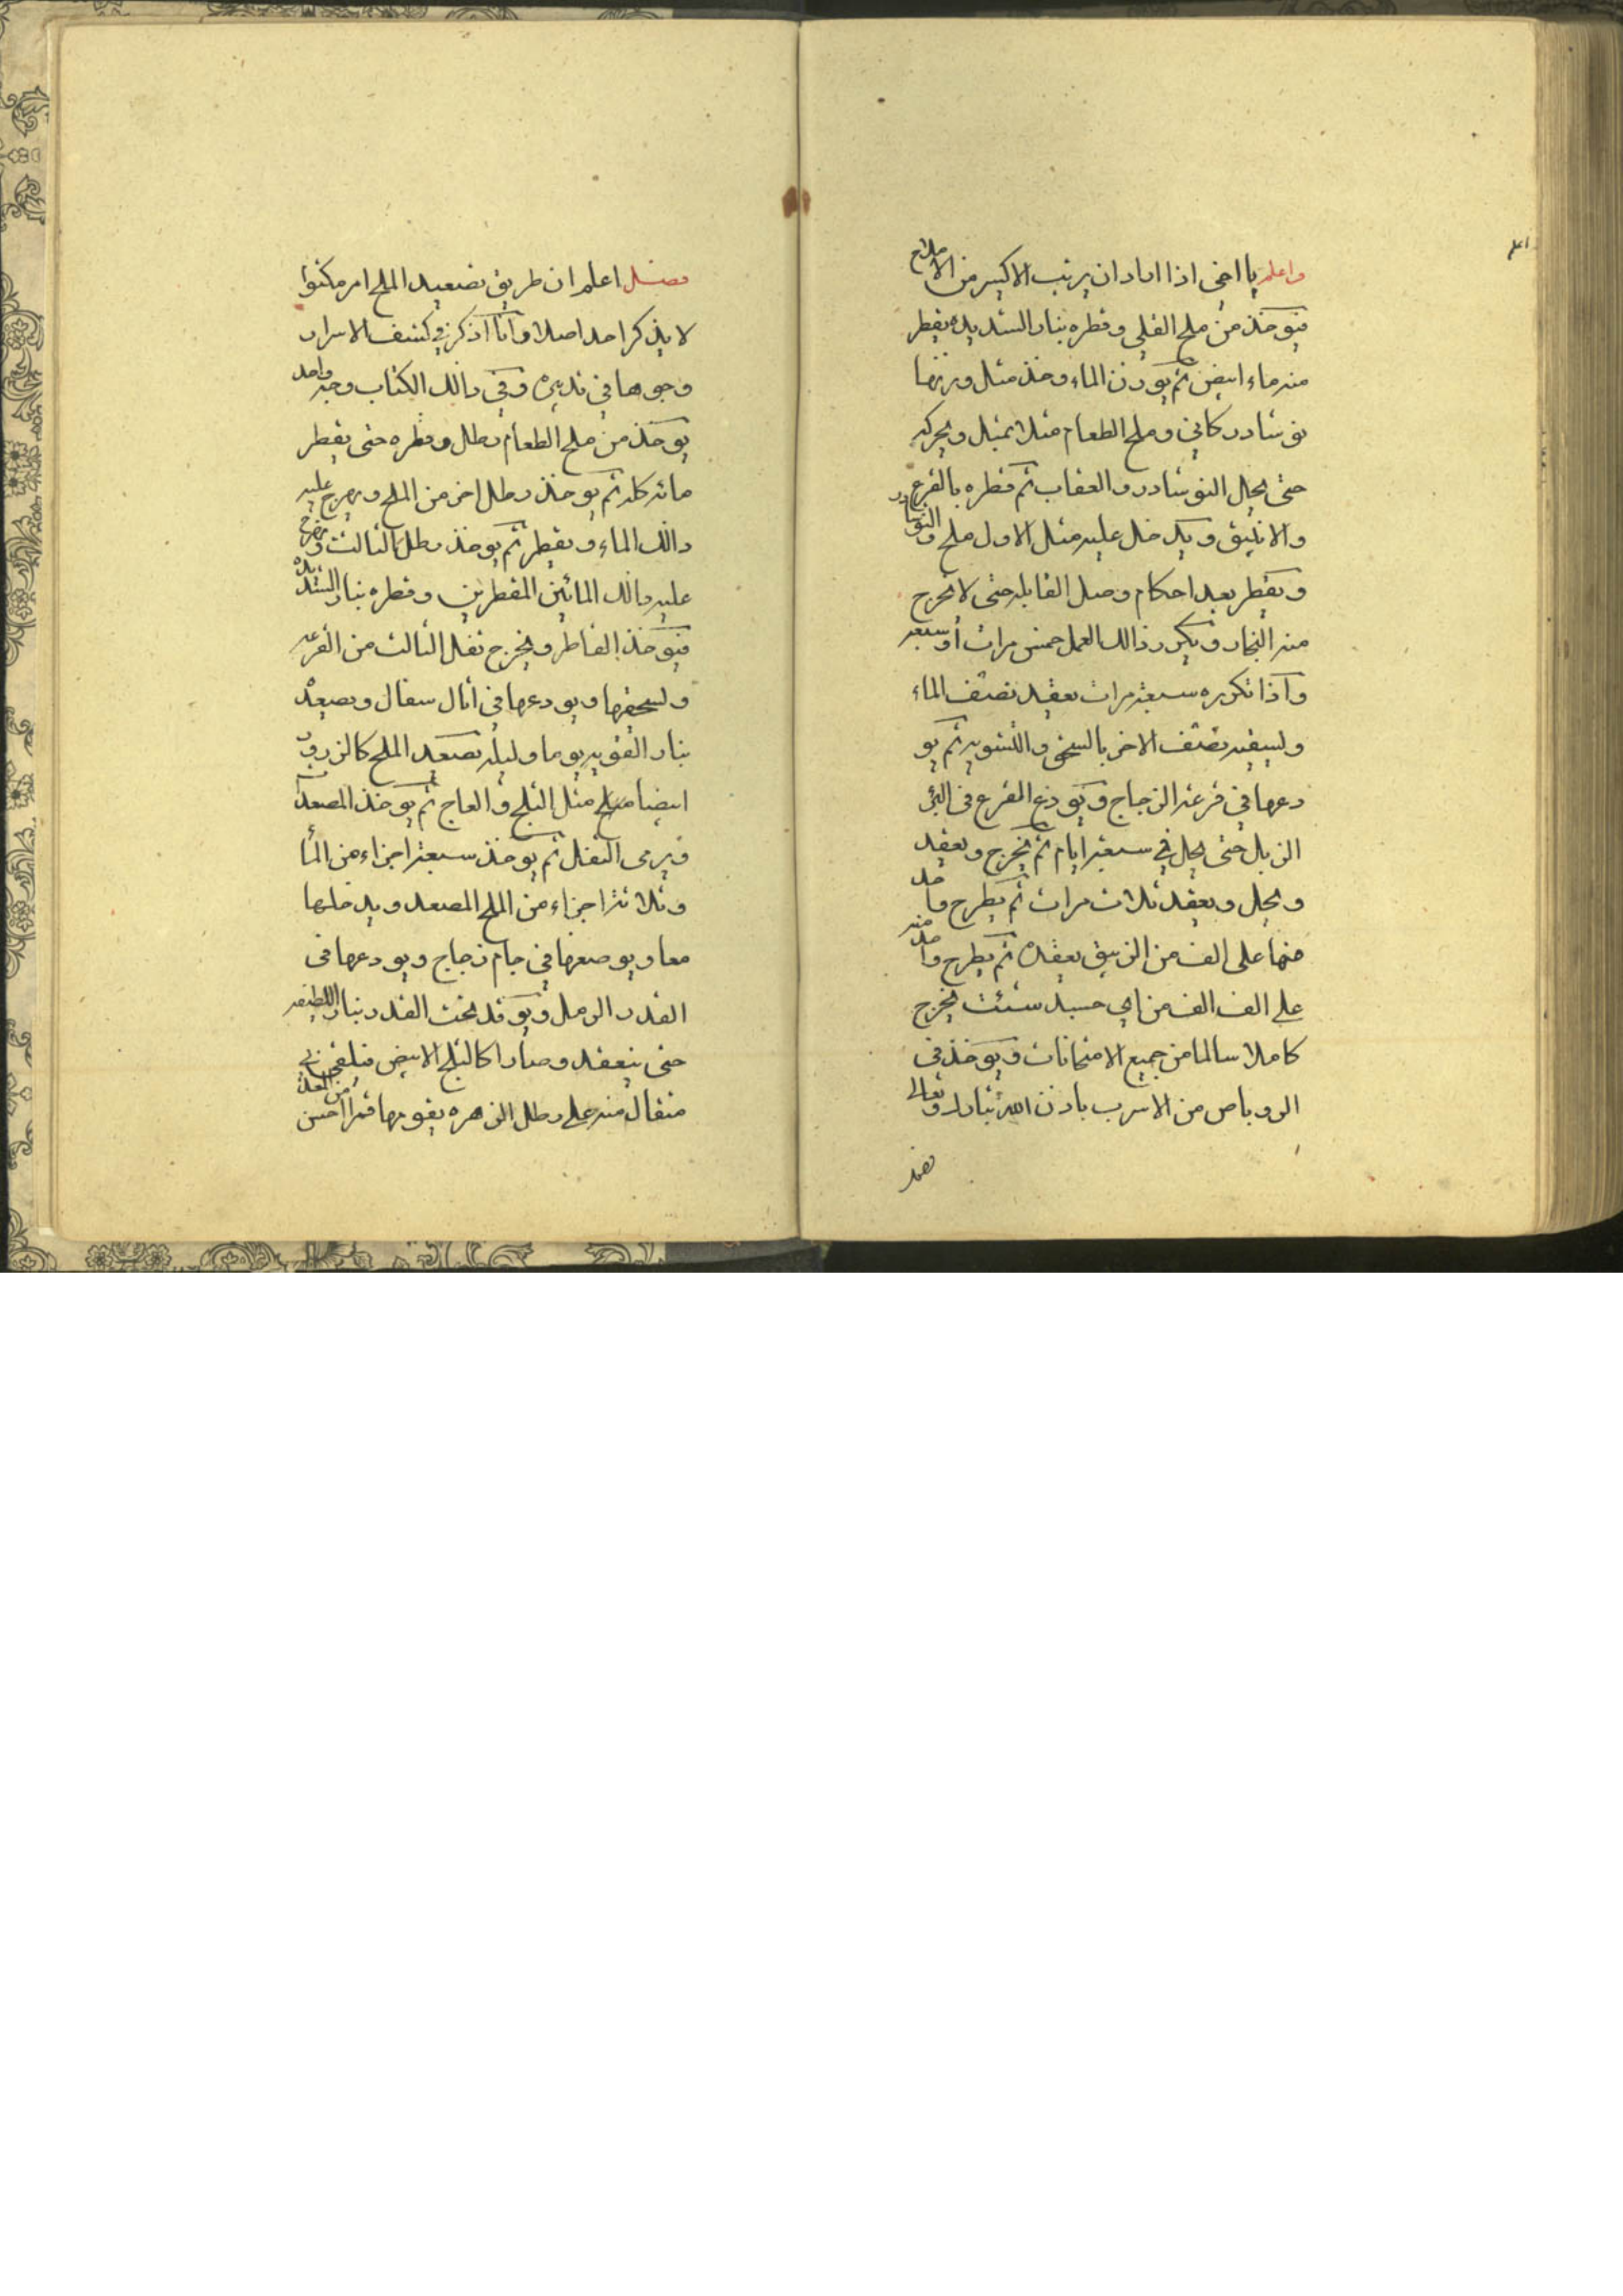 واعلم يا اخى اذا اراد ان يرتب الاكسير من الاملاح
فيوخذ من ملح القلى وقطره بنار الشديده يقطر
منه ماء ابيض ثم يوزن الماء وخذ مثل وزنها
نوشادر كانى وملح الطعام مثلا بمثل ويحركه
حتى يحل النوشادر والعقاب ثم قطره بالقرع
والانبيق ويدخل عليه مثل الاول ملح والنوشادر
ويقطر بعد احكام وصل القابله حتى لا تخرج
منه البخار ويكرر ذالك العمل خمس مرات او سبعه
واذا تكرره سبعة مرات يعقد نصف الماء
وليسقيه نصف الاخر بالسحق والتشويه ثم يو
دعها فى قرعة الزجاج ويودع القرع فى البئر
الزبل حتى يحل فى سبعة ايام ثم يخرج ويعقد
ويحل ويعقد ثلاث مرات ثم يطرح واحد
منها على الف من الزيبق يعقده ثم يطرح واحد منه
على الف الف من اى جسد شئت يخرج
كاملا سالما من جميع الامتحانات ويوخذ فى
الروباص من الاسرب باذن الله تبارك وتعالى
فصل
فصل اعلم ان طريق تصعيد الملح امر مكتوما
لا يذكر احد اصلا وانا اذكر فى كشف الاسرار
وجوها فى تدبيره وفى ذالك الكتاب وجه واحد
يوخذ من ملح الطعام رطل وقطره حتى يقطر
مائه كله ثم يوخذ رطل اخر من الملح ويمزج عليه
ذالك الماء ويقطر ثم يوخذ رطل الثالث ويمزج
عليه ذالك المائين المقطرين وقطره بنار الشديده
فيوخذ القاطر ويخرج ثفل الثالث من القرعه
وليسحقها ويودعها فى اثال سفال ويصعد
بنار القويه يوما وليله تصعد الملح كالزرو
ابيضا مثل الثلج والعاج ثم يوخذ المصعد
ويرمى الثفل ثم يوخذ سبعة اجزاء من الماء
وثلاثة اجزاء من الملح المصعد ويدخلها
معا ويوضعها فى جام زجاج ويودعها فى
القدر الرمل ويوقد تحت القدر بنار اللطيفه
حتى ينعقد وصارا كالثلج الابيض فيلقى
مثقال منه على رطل الزهره يقومها قمرا احسن من المعدن